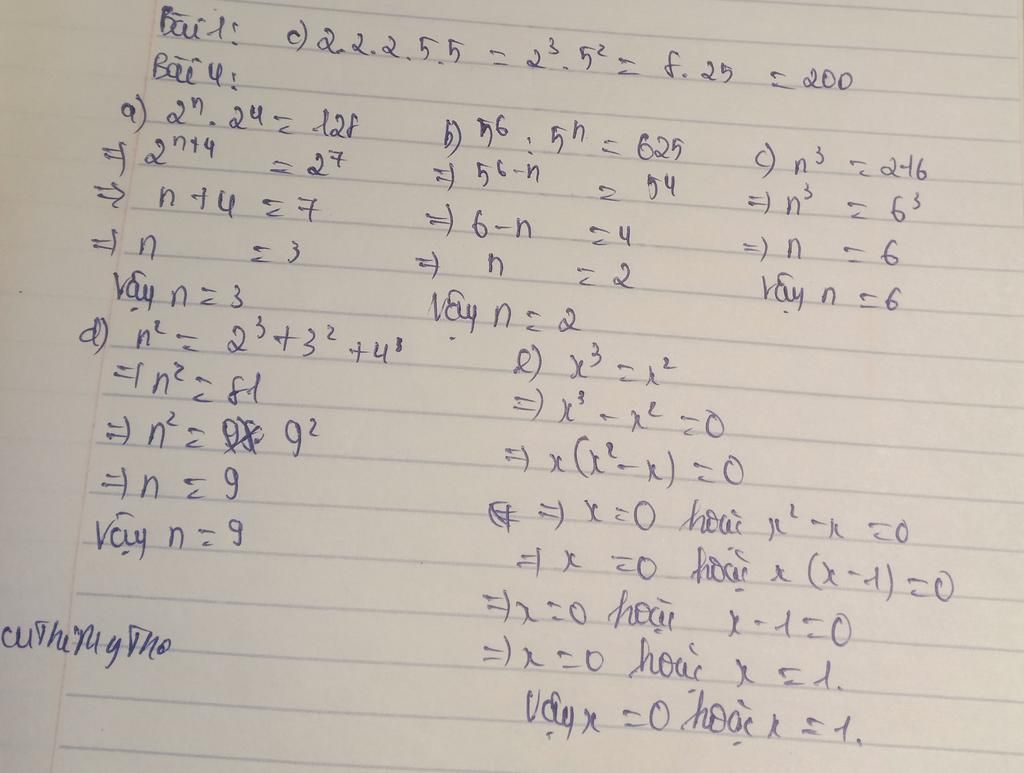 Bài 1: c) 2.2.2.5.5 = 2³.5² = 8.25 = 200
Bài 4:
a) 2ⁿ.2⁴ = 128
⇒ 2ⁿ⁺⁴ = 2⁷
⇒ n+4 = 7
⇒ n = 3
Vậy n = 3
b) 5⁶ : 5ⁿ = 625
⇒ 5⁶⁻ⁿ = 5⁴
⇒ 6-n = 4
⇒ n = 2
Vậy n = 2
c) n³ = 216
⇒ n³ = 6³
⇒ n = 6
Vậy n = 6
d) n² = 2³+3²+4³
⇒ n² = 81
⇒ n² = 9²
⇒ n = 9
Vậy n = 9
e) x³ = x²
⇒ x³ - x² = 0
⇒ x(x²-x) = 0
⇒ x = 0 hoặc x² - x = 0
⇒ x = 0 hoặc x (x-1) = 0
⇒ x = 0 hoặc x-1 = 0
⇒ x = 0 hoặc x = 1.
Vậy x = 0 hoặc x = 1.